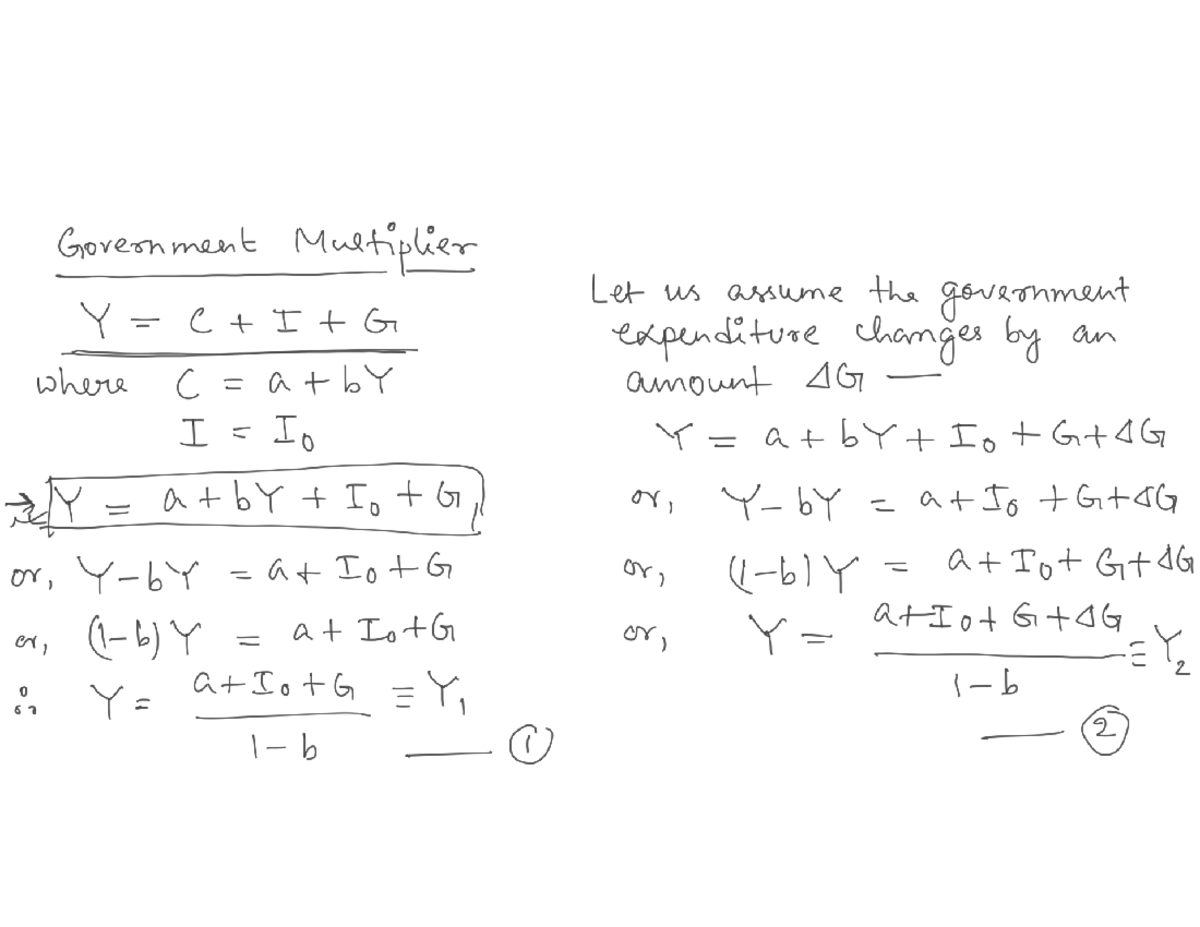 Government Multiplier
Y = C + I + G
where C = a + bY
I = I₀
Y = a + bY + I₀ + G
or, Y - bY = a + I₀ + G
or, (1-b) Y = a + I₀ + G
∴ Y = (a + I₀ + G)/(1 - b) ≡ Y₁
— ①
Let us assume the government
expenditure changes by an
amount ΔG —
Y = a + bY + I₀ + G + ΔG
or, Y - bY = a + I₀ + G + ΔG
or, (1-b) Y = a + I₀ + G + ΔG
or, Y = (a + I₀ + G + ΔG)/(1 - b) ≡ Y₂
— ②